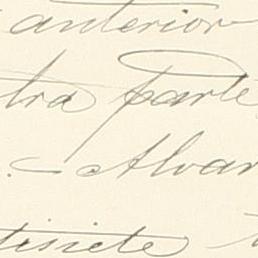 anterior
tra parte
. - Alvar
tisiete